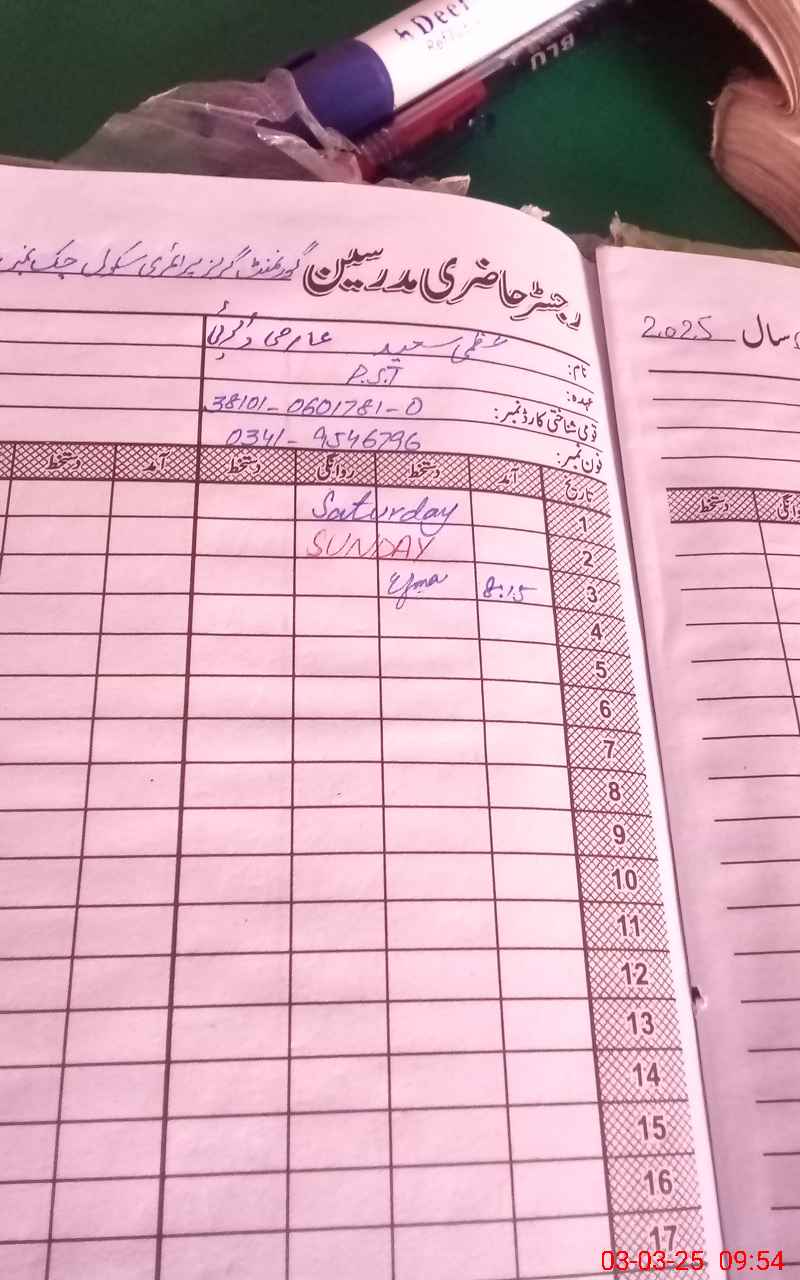 Deer
BLU
رجسٹر حاضری مدرسین گورنمنٹ گرلز پرائمری سکول چک نمبر
سال 2025
نام: عظمیٰ سعید عارضی ڈیوٹی
عہدہ: P.S.T
قومی شناختی کارڈ نمبر: 38101-0601781-0
فون نمبر: 0341-9546796
تاریخ آمد دستخط روانگی دستخط آمد دستخط
دستخط
1 Saturday
2 SUNDAY
3 8:15
4
5
6
7
8
9
10
11
12
13
14
15
16
17
03-03-25 09:54